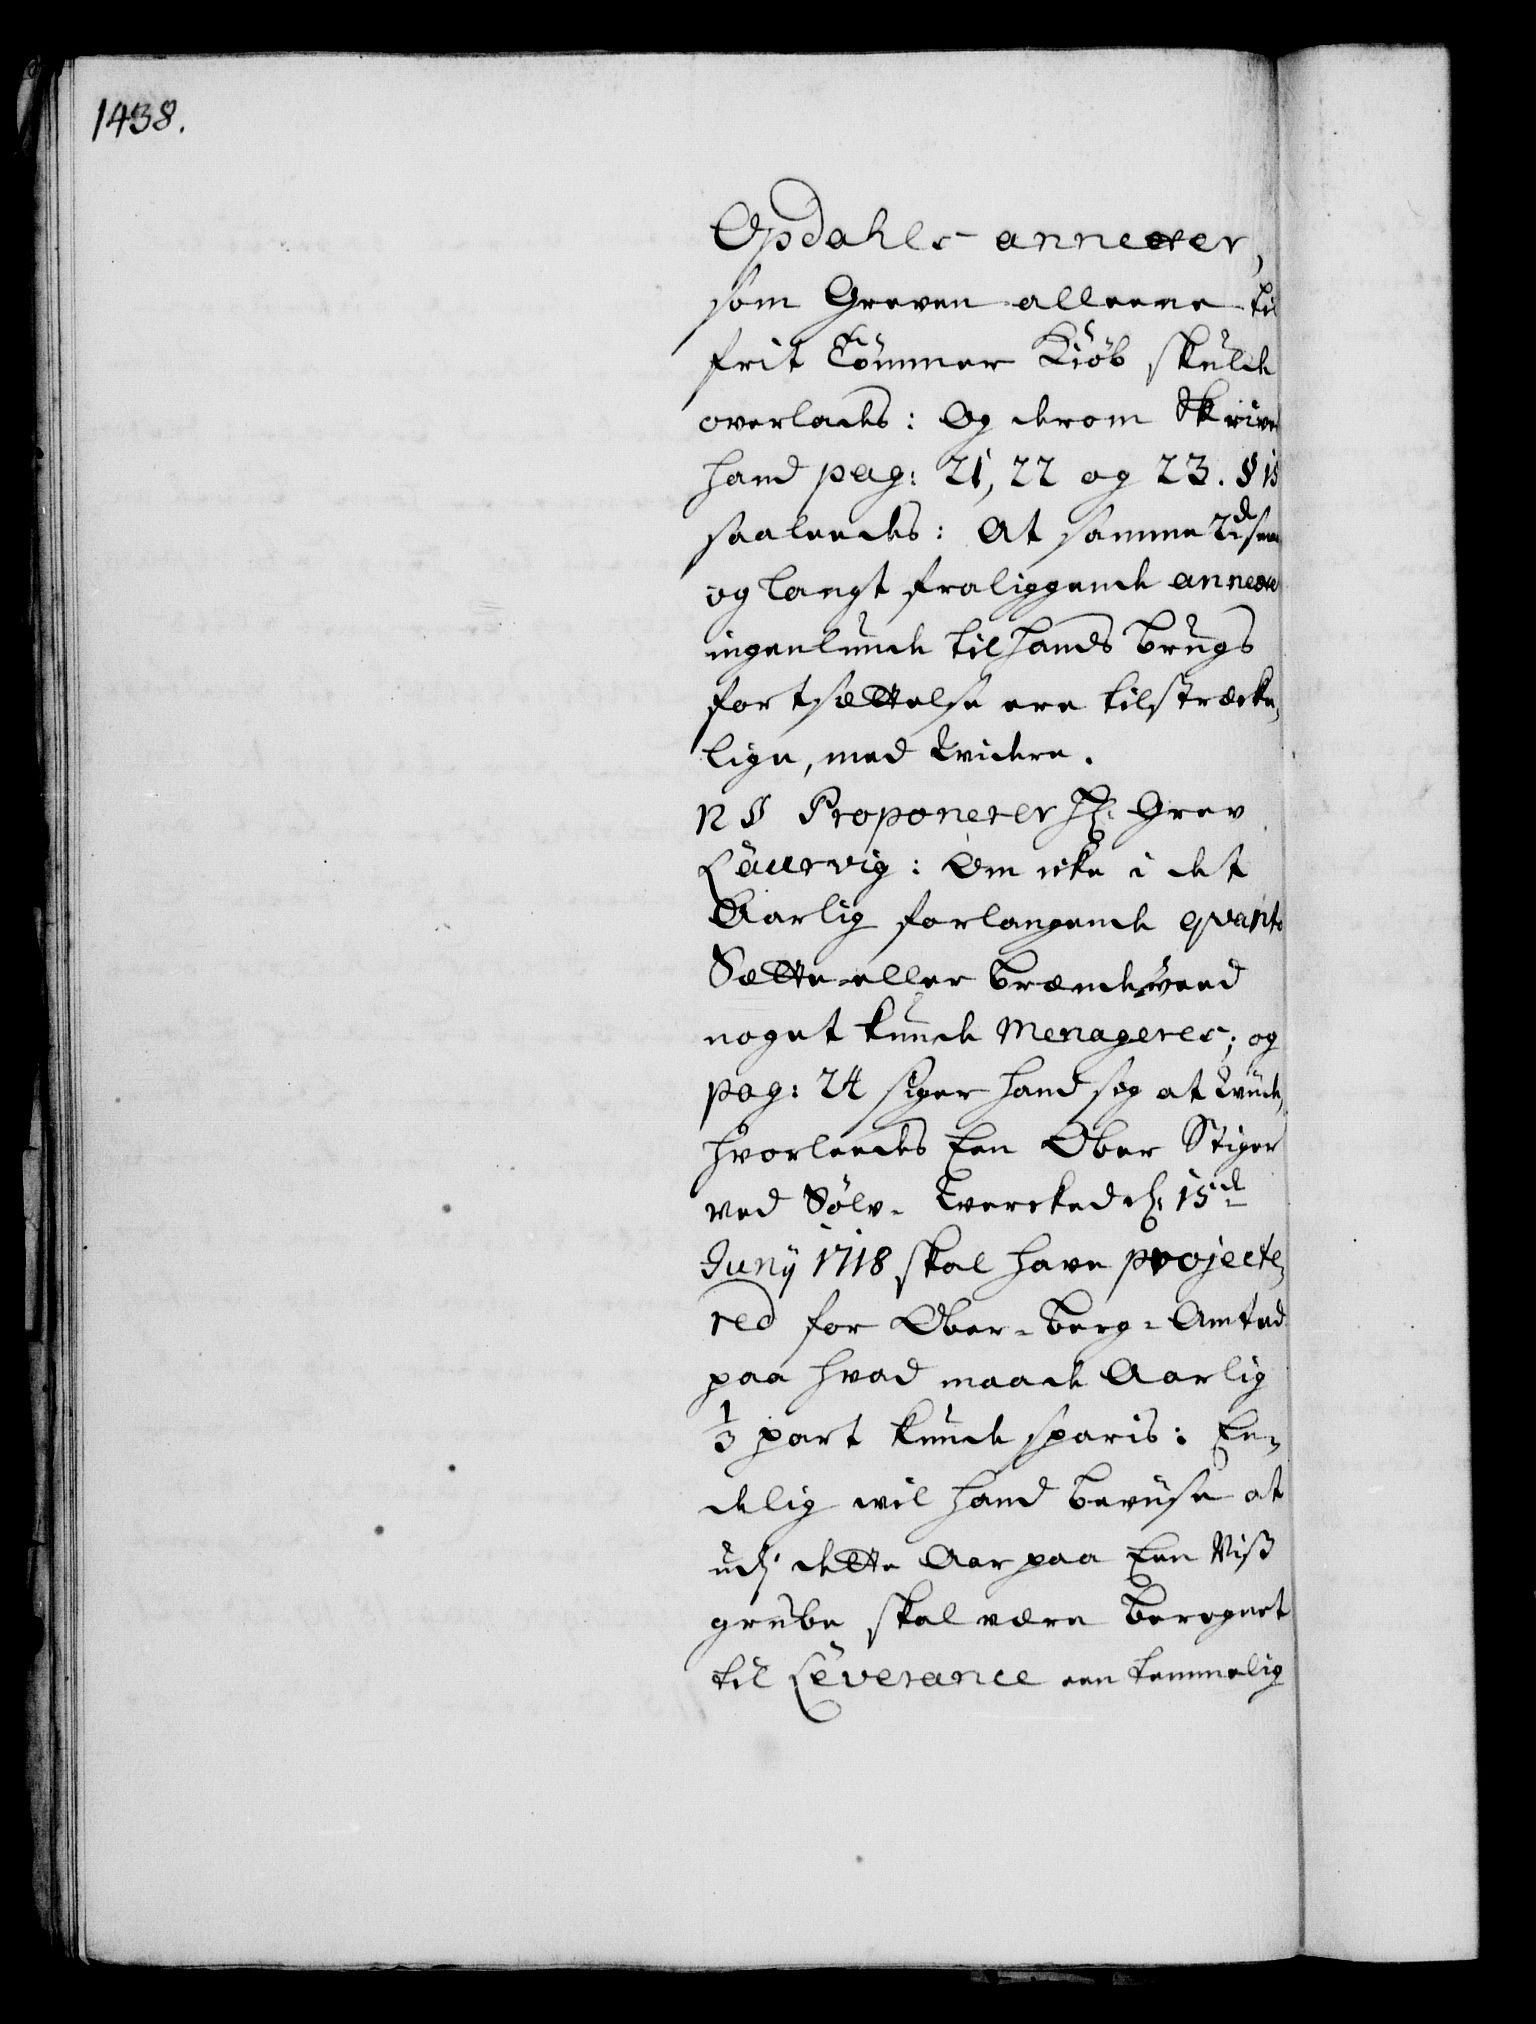 1438.
Opdahls annexer,
som Greven alleene til
frit Tömmer Kiöb skulde
overlades: Og derom Skriver
hand pag: 21, 22 og 23. § 15
saaleedes: At samme
og langt fraliggende annexer
ingenlunde til hands brugs
fortsættelse ere tilstrecke,
lige, med widere.
12 § Proponerer Hr: Grev
Laurvig: Om icke i det
Aarlig forlangende qvanto
Sætte-eller brændeveed
noget kunde Menageres; og
pag: 24 siger hand sig at wide,
hvorleedes Een Ober Stiger
ved Sølv-Wercked d: 15de
Junij 1718 skal have projecte,
red for Ober-Berg-Amted
paa hvad maade Aarlig
1/3 part kunde sparis: En,
delig wil hand beviise at
udj dette Aar paa Een Viß
grube skal være beregnet
til Leverance een temmelig